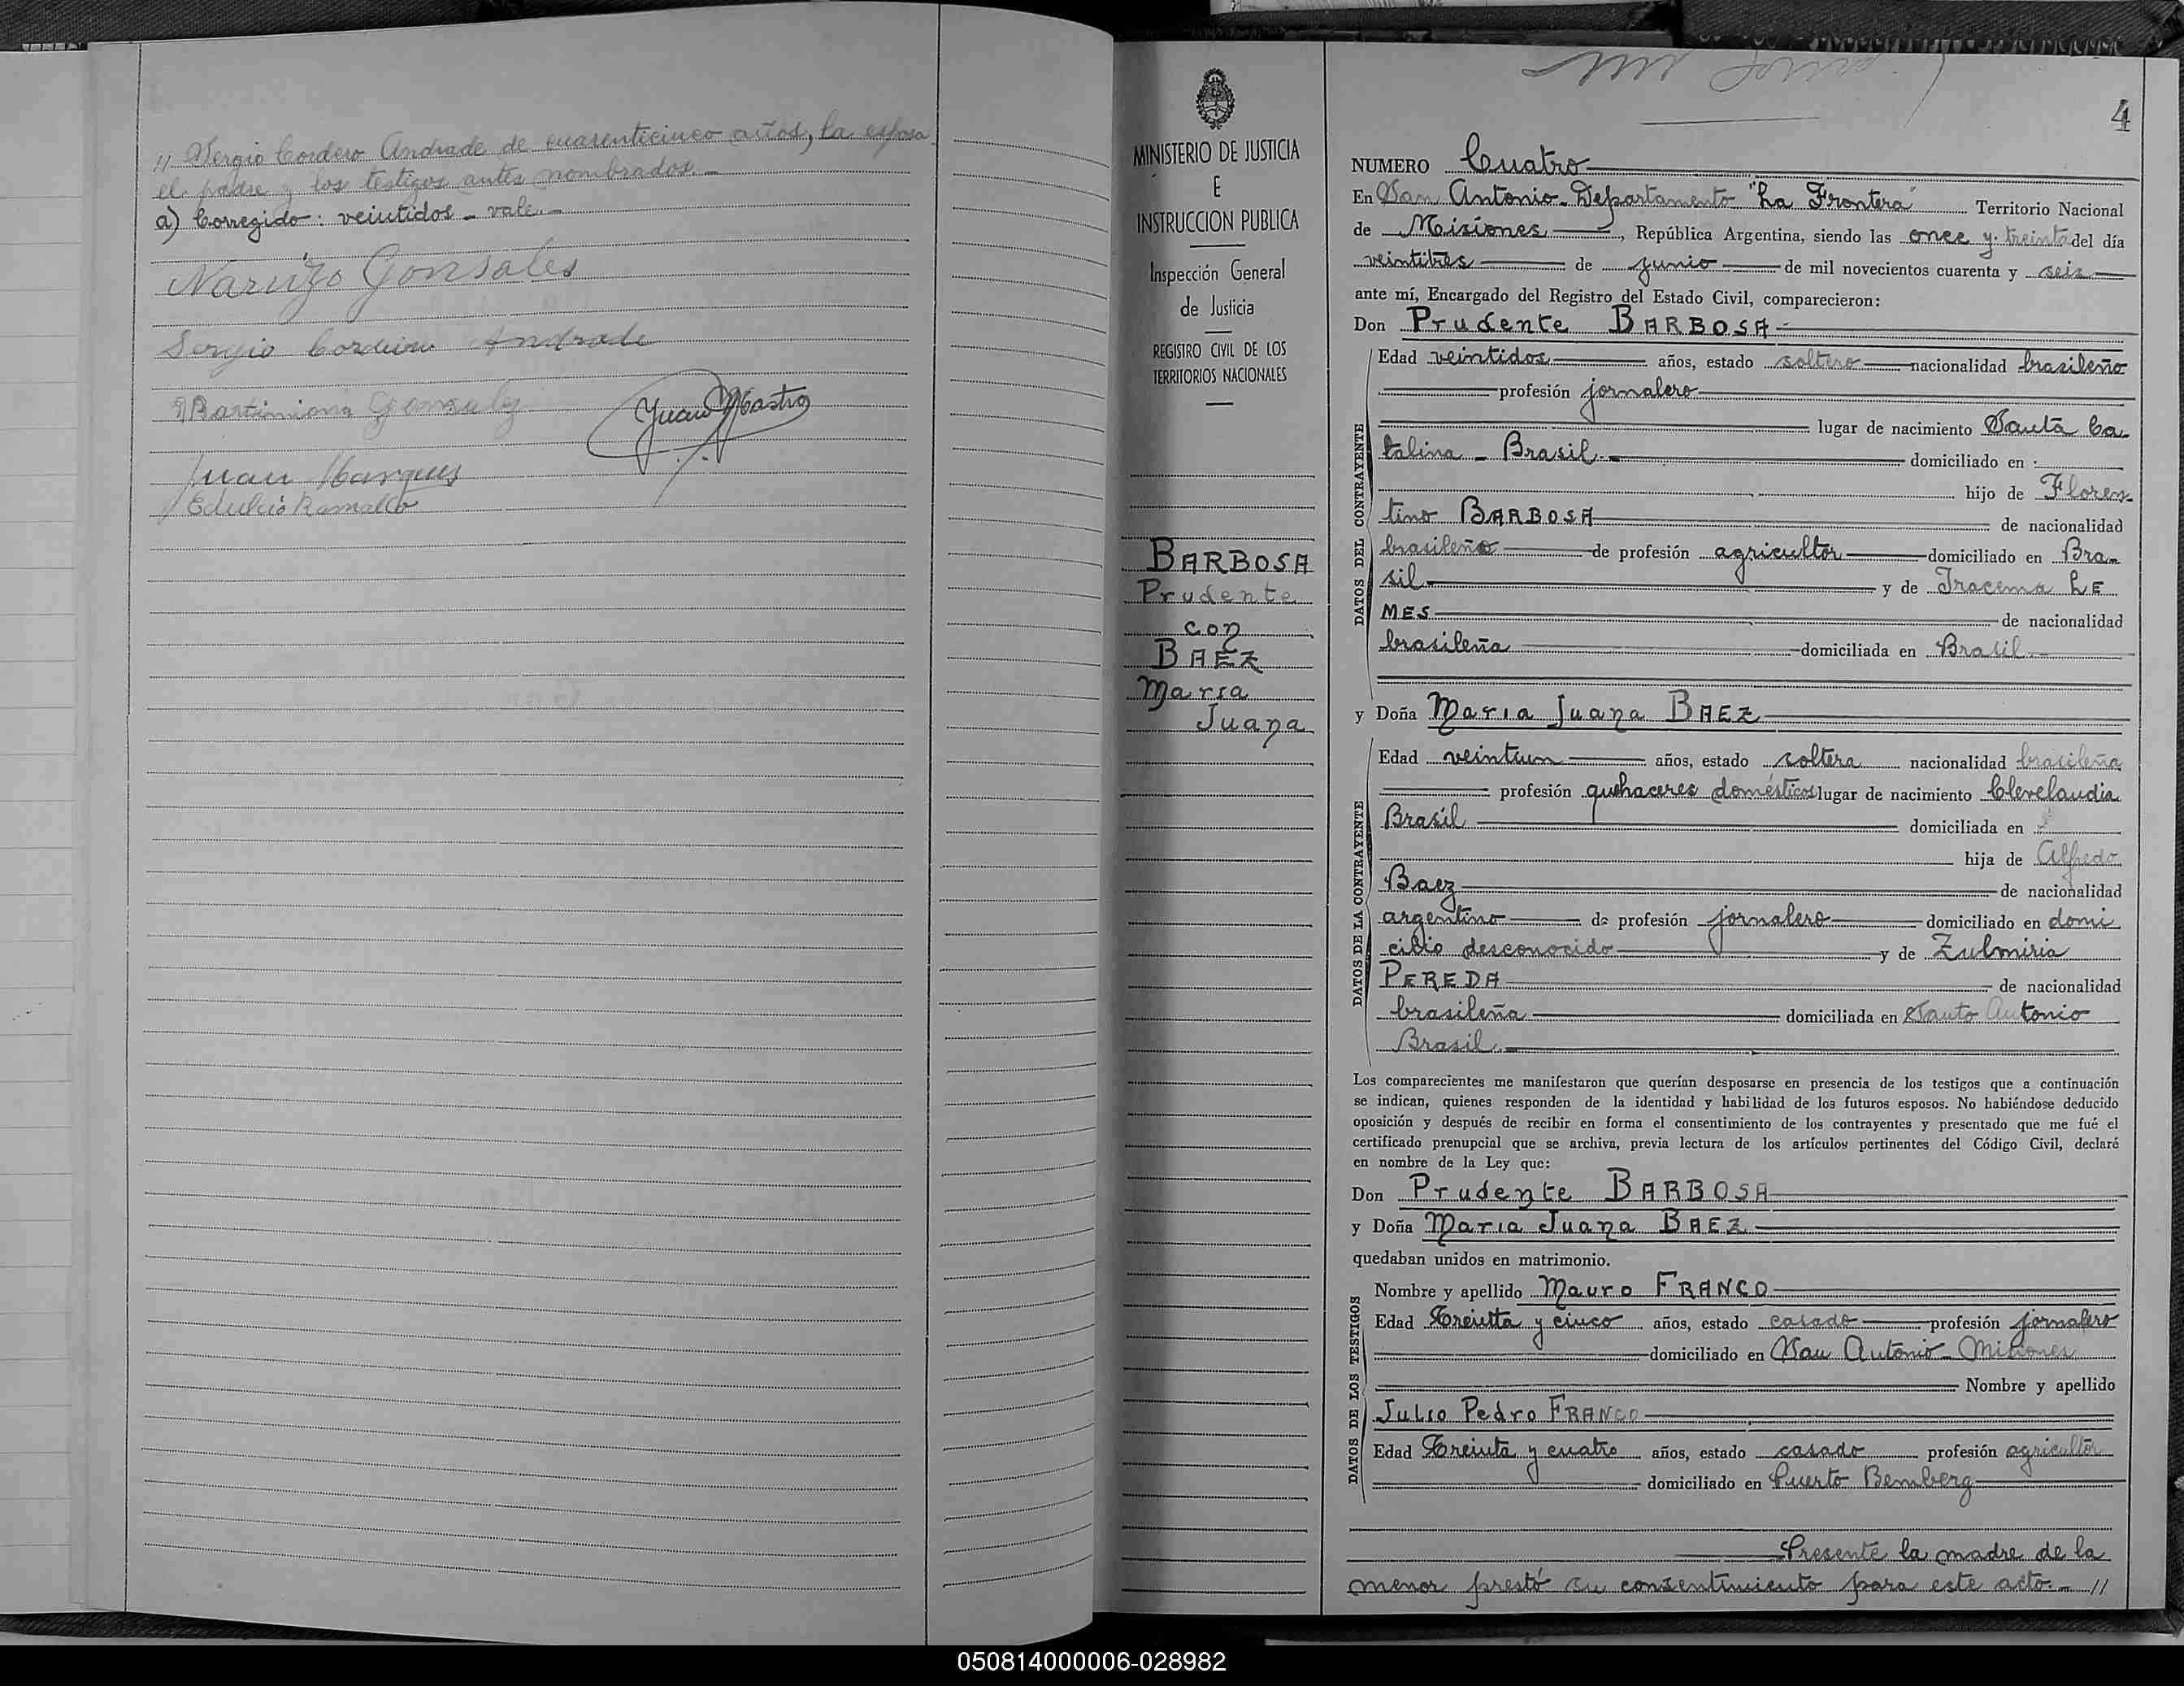 // Sergio Cordero Andrade de cuarenticinco años, la esposa
el padre y los testigos antes nombrados.-
a) Corregido: veintidos - vale.-
Narcizo Gonsales
Sergio Cordeiro Andrade
Juan Mastro
Juan Marques
MINISTERIO DE JUSTICIA
E
INSTRUCCION PUBLICA
Inspección General
de Justicia
REGISTRO CIVIL DE LOS
TERRITORIOS NACIONALES
BARBOSA
Prudente
con
BAEZ
Maria
Juana
4
NUMERO Cuatro
En San Antonio - Departamento "La Frontera" Territorio Nacional
de Misiones, República Argentina, siendo las once y treinta del día
veintitrés de junio de mil novecientos cuarenta y seis
ante mí, Encargado del Registro del Estado Civil, comparecieron:
Don Prudente BARBOSA-
DATOS DEL CONTRAYENTE
Edad veintidos años, estado soltero nacionalidad brasileño
profesión jornalero
lugar de nacimiento Santa Ca-
talina - Brasil.- domiciliado en
hijo de Floren-
tino BARBOSA de nacionalidad
brasileño de profesión agricultor domiciliado en Bra-
sil y de Iracema LE
MES de nacionalidad
brasileña domiciliada en Brasil
y Doña Maria Juana BAEZ
DATOS DE LA CONTRAYENTE
Edad veintiun años, estado soltera nacionalidad brasileña
profesión quehaceres domésticos lugar de nacimiento Clevelandia
Brasil domiciliada en
hija de Alfredo
Baez de nacionalidad
argentino de profesión jornalero domiciliado en domi
cilio desconocido y de Zulmiria
PEREDA de nacionalidad
brasileña domiciliada en Santo Antonio
Brasil.
Los comparecientes me manifestaron que querían desposarse en presencia de los testigos que a continuación
se indican, quienes responden de la identidad y habilidad de los futuros esposos. No habiéndose deducido
oposición y después de recibir en forma el consentimiento de los contrayentes y presentado que me fué el
certificado prenupcial que se archiva, previa lectura de los artículos pertinentes del Código Civil, declaré
en nombre de la Ley que:
Don Prudente BARBOSA
y Doña Maria Juana BAEZ
quedaban unidos en matrimonio.
DATOS DE LOS TESTIGOS
Nombre y apellido Mauro FRANCO
Edad Treinta y cinco años, estado casado profesión jornalero
domiciliado en San Antonio - Misiones
Nombre y apellido
Julio Pedro FRANCO
Edad Treinta y cuatro años, estado casado profesión agricultor
domiciliado en Puerto Bemberg
Presente la madre de la
menor prestó su consentimiento para este acto.- //
050814000006-028982